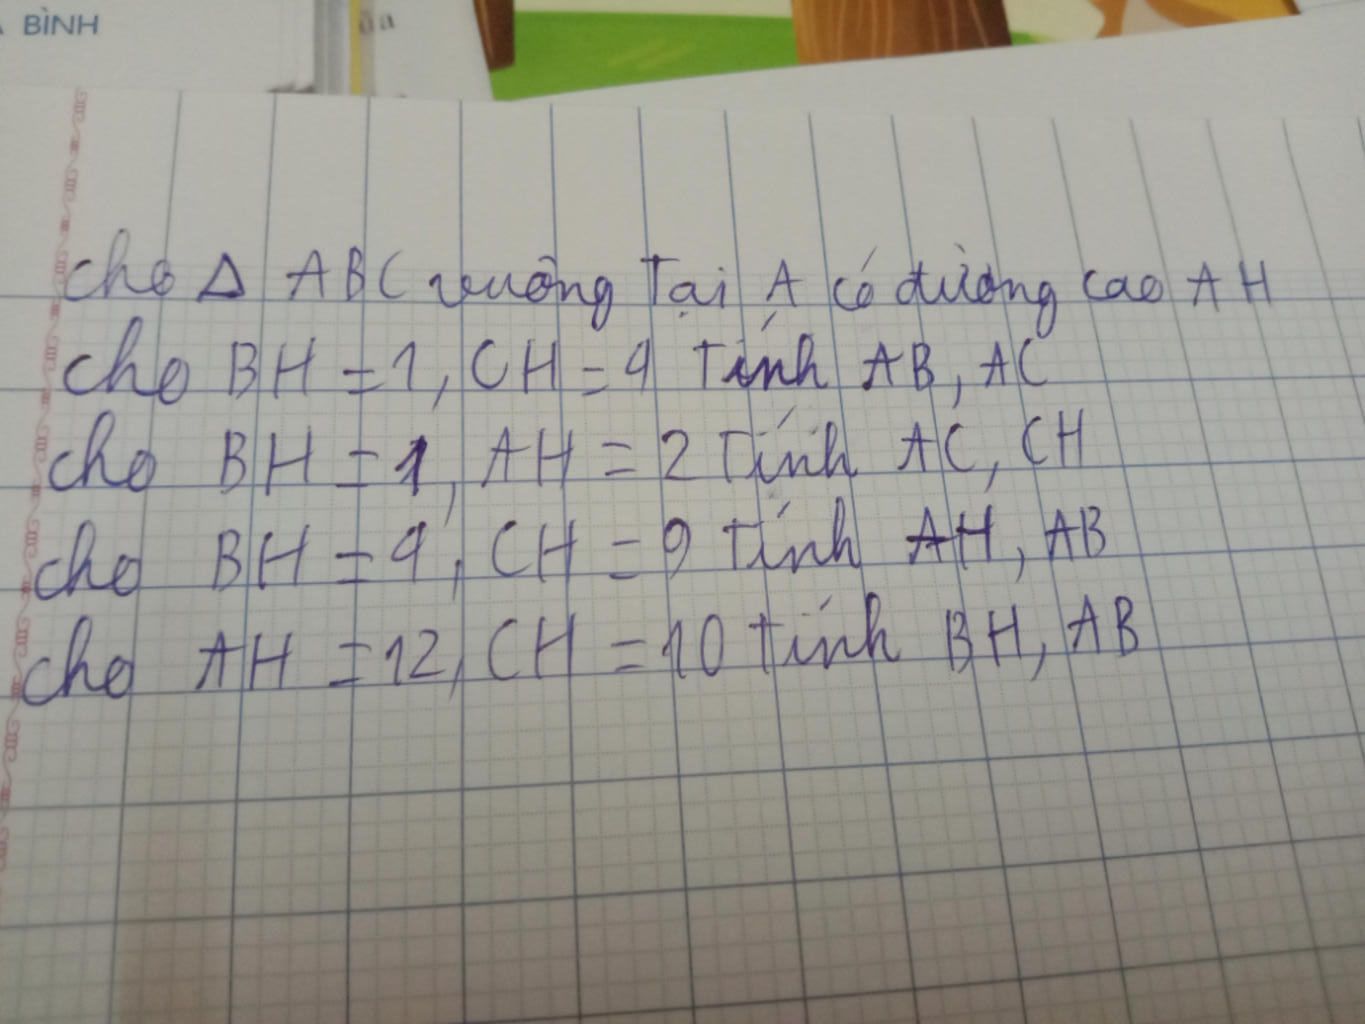 BÌNH
cho Δ ABC vuông Tại A có đường cao AH
cho BH = 1, CH = 4 Tính AB, AC
cho BH = 1, AH = 2 Tính AC, CH
cho BH = 4, CH = 9 Tính AH, AB
cho AH = 12, CH = 10 tính BH, AB